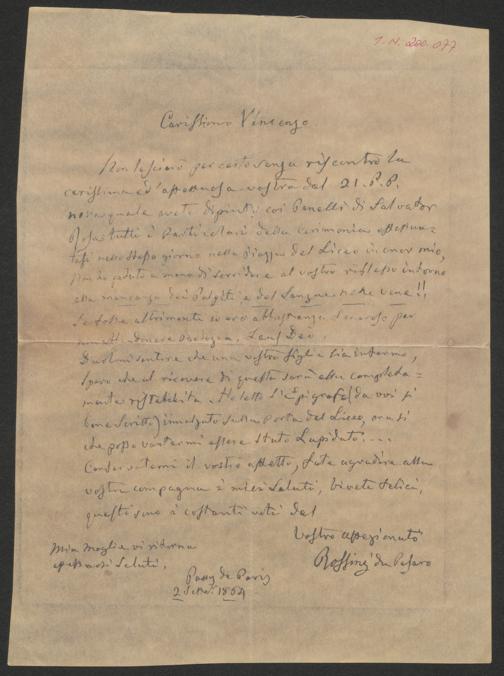 I.N. 200.077
Carissimo Vincenzo
Non lascierò per certo senza riscontro la
carissima ed affettuosa vostra del 21. P.P.
nella quale avete dipinto coi Penelli di Salvator
Rosa tutti i Particolari della cerimonia
nello stesso giorno nella Piazza del Liceo in onor mio,
a meno di Sorridere al vostro riflesso intorno
alla mancanza dei Palpiti e del Sangue nelle vene!!
Se fosse altrimenti io ero abbastanza per
Laus Deo.
sentire che una vostra figlia sia inferma,
spero che il ricevere di questa sarà essa completa=
mente ristabilita. Ho letto l'Epigrafe (da voi sì
bene scritto) innalzato sulla Porta del Liceo, ora sì
che posso vantarmi essere stato Lapidato....
Conservatemi il vostro affetto, fate aggradire alla
vostra compagna i miei Saluti, vivete felici,
questi sono i costanti voti del
Vostro affezionato
Rossini da Pesaro
Mia Moglie vi ritorna
affettuosi Saluti.
Passy de Paris
2 Sett. 1864